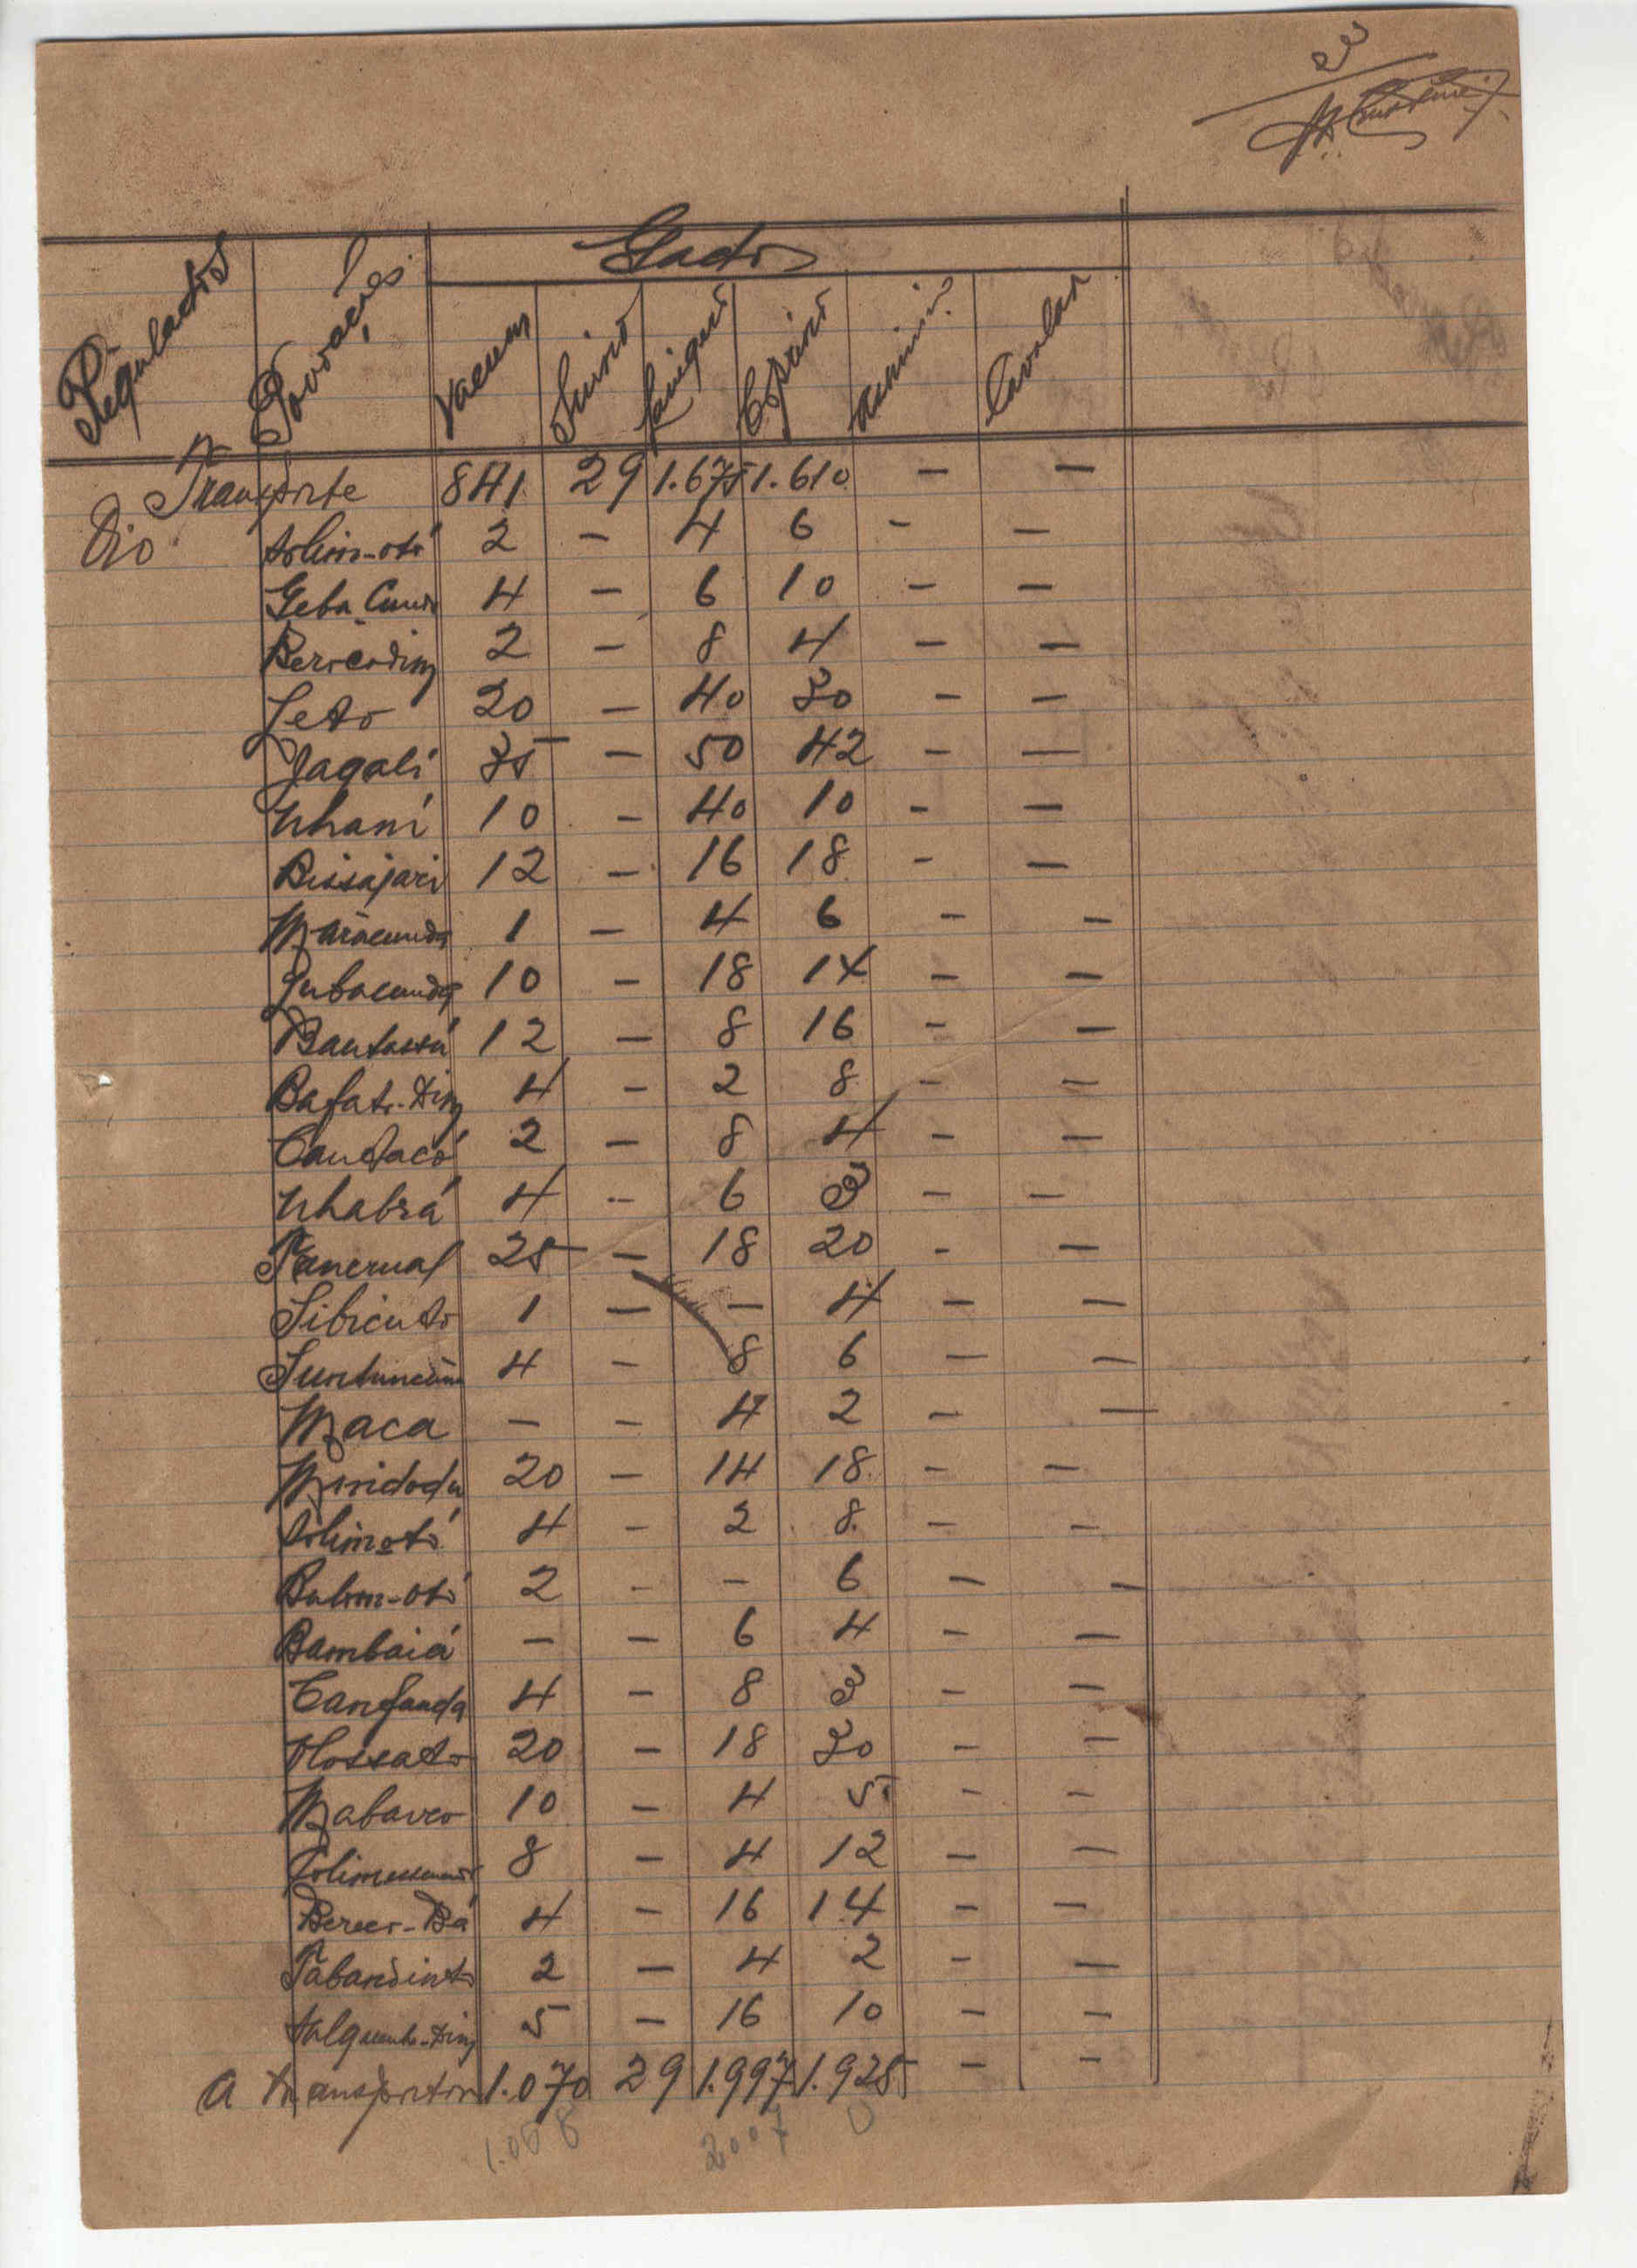 3
Gados
Regulados Povoações Vacum Suino Lanigero Caprino Asinino Cavalar
Transporte 841 29 1.675 1.610 — —
Oio Solim-otó 2 — 4 6 — —
Geba Cunda 4 — 6 10 — —
Berecodim 2 — 8 4 — —
Jeto 20 — 40 30 — —
Jagali 35 — 50 42 — —
Nhani 10 — 40 10 — —
Bissajari 12 — 16 18 — —
Maracunda 1 — 4 6 — —
Jubacunda 10 — 18 14 — —
Bantassú 12 — 8 16 — —
Bafata-Ding 4 — 2 8 — —
Cantacó 2 — 8 4 — —
Nhabrá 4 — 6 3 — —
Mancrual 25 — 18 20 — —
Sibicuto 1 — — 4 — —
4 — 8 6 — —
Maca — — 4 2 — —
Miridodu 20 — 14 18 — —
Solimotó 4 — 2 8 — —
2 — — 6 — —
Bambaiá — — 6 4 — —
Canfanda 4 — 8 3 — —
Olossato 20 — 18 30 — —
Mabavro 10 — 4 5 — —
8 — 4 12 — —
Bereco-Bá 4 — 16 14 — —
Tabandinto 2 — 4 2 — —
5 — 16 10 — —
A transportar 1.070 29 1.997 1.925 — —
1.068 2007 0